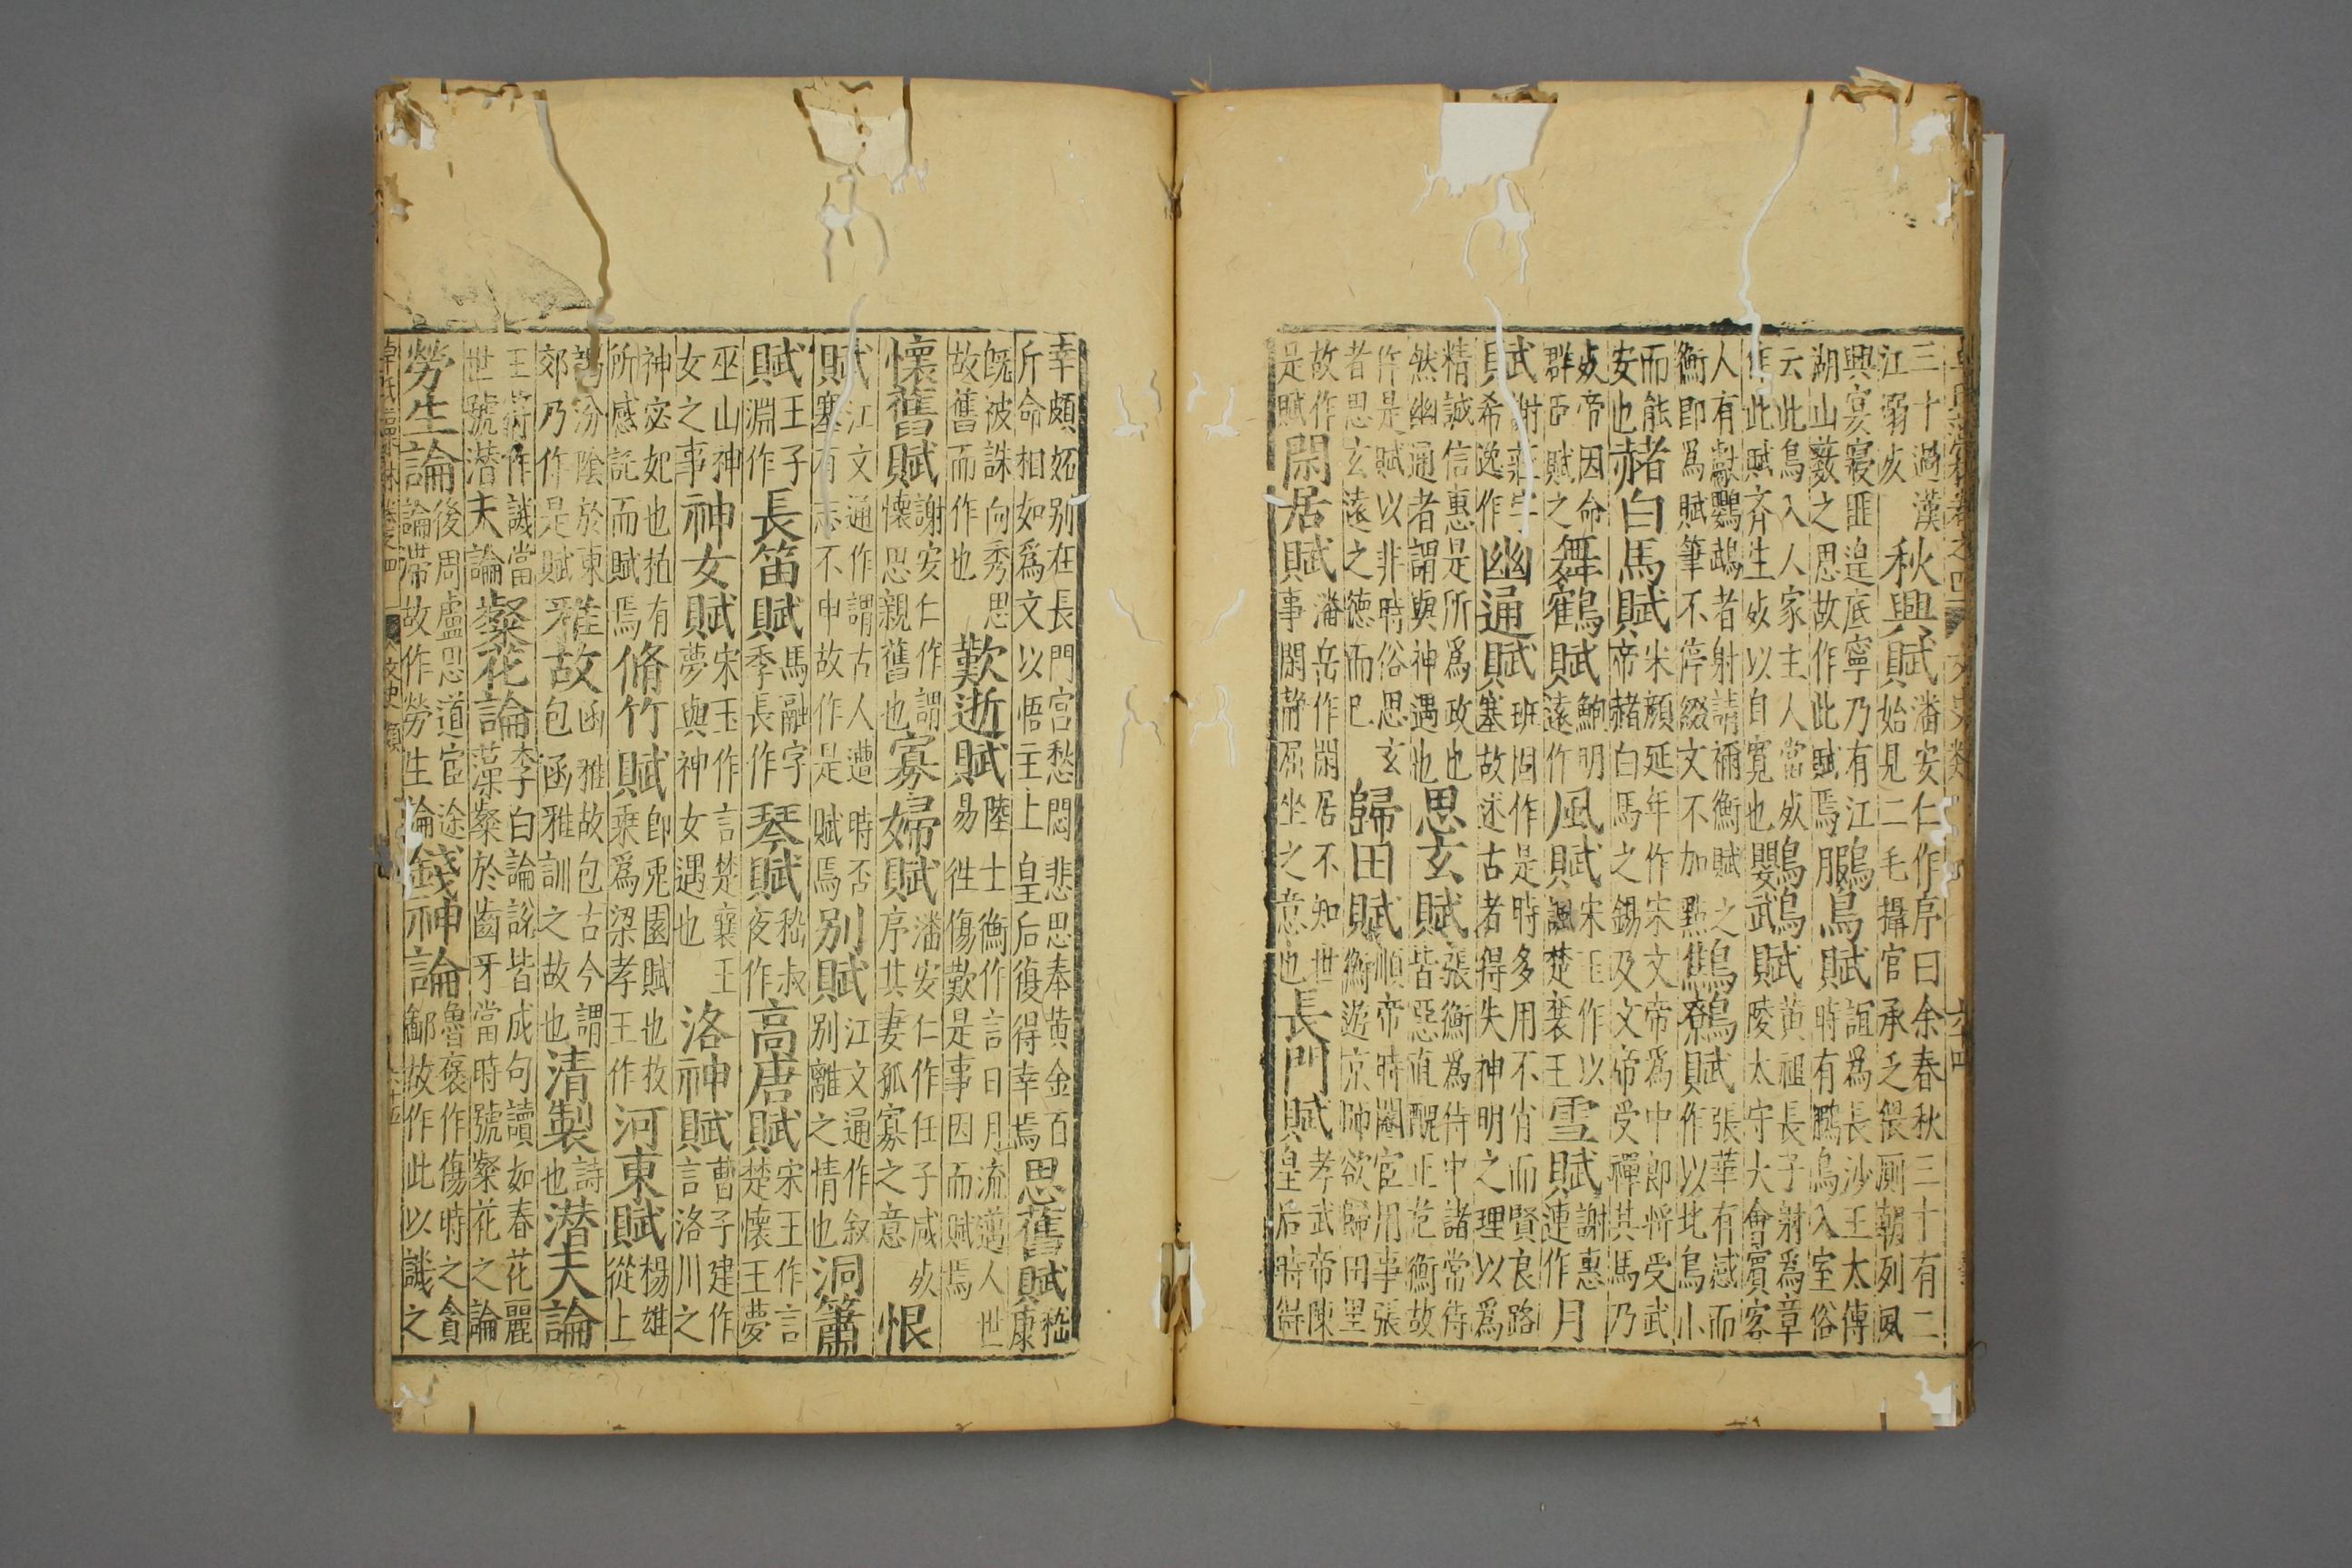 卓氏藻林卷之四 文史類 六十四
三十過漢江溺死秋興賦潘安仁作序曰余春秋三十有二始見二毛攝官承乏猥厠朝列夙
興宴寢匪遑底寧乃有江湖山藪之思故作此賦焉鵩鳥賦誼爲長沙王太傅時有鵩鳥入室俗
云此鳥入人家主人當死作此賦齊生死以自寬也鸚鵡賦黃祖長子射爲章陵太守大會賓客
人有獻鸚鵡者射請禰衡賦之衡即爲賦筆不停綴文不加點鷦鷯賦張華有感而作以此鳥小
而能安也赭白馬賦宋顏延年作宋文帝爲中郎將受武帝赭白馬之錫及文帝受禪其馬乃
死帝因命群臣賦之舞鶴賦鮑明遠作風賦宋玉作以諷楚襄王雪賦謝惠連作月
賦謝莊字希逸作幽通賦班固作是時多用不肖而賢良路塞故述古者得失神明之理以爲
精誠信惠是所爲政也然幽通者謂與神遇也思玄賦張衡爲侍中諸常侍皆惡直醜正危衡故
作是賦以非時俗思玄者思玄遠之德而已歸田賦順帝時閹宦用事張衡遊京師欲歸田里
故作是賦閑居賦潘岳作閑居不知世事閑靜居坐之意也長門賦孝武帝陳皇后時得
幸頗妬別在長門宮愁悶悲思奉黃金百斤命相如爲文以悟主上皇后復得幸焉思舊賦嵇康
既被誅向秀思故舊而作也歎逝賦陸士衡作言日月流邁人世易徃傷歎是事因而賦焉
懷舊賦謝安仁作謂懷思親舊也寡婦賦潘安仁作任子咸死序其妻孤寡之意恨
賦江文通作謂古人遭時否塞有志不申故作是賦焉別賦江文通作叙別離之情也洞簫
賦王子淵作長笛賦馬融字季長作琴賦嵇叔夜作高唐賦宋玉作言楚懷王夢
巫山神女之事神女賦宋玉作言楚襄王夢與神女遇也洛神賦曹子建作言洛川之
神宓妃也植有所感託而賦焉脩竹賦即兎園賦也枚乘爲梁孝王作河東賦楊雄從上
謁汾陰於東郊乃作是賦雅故函雅故包古今謂包函雅訓之故也清製詩也潜夫論
王符作誡當世號潜夫論粲花論李白論說皆成句讀如春花麗藻粲於齒牙當時號粲花之論
勞生論後周盧思道宦途論滯故作勞生論錢神論魯褒作傷時之貪鄙故作此以譏之
卓氏藻林卷之四 文史類 六十五